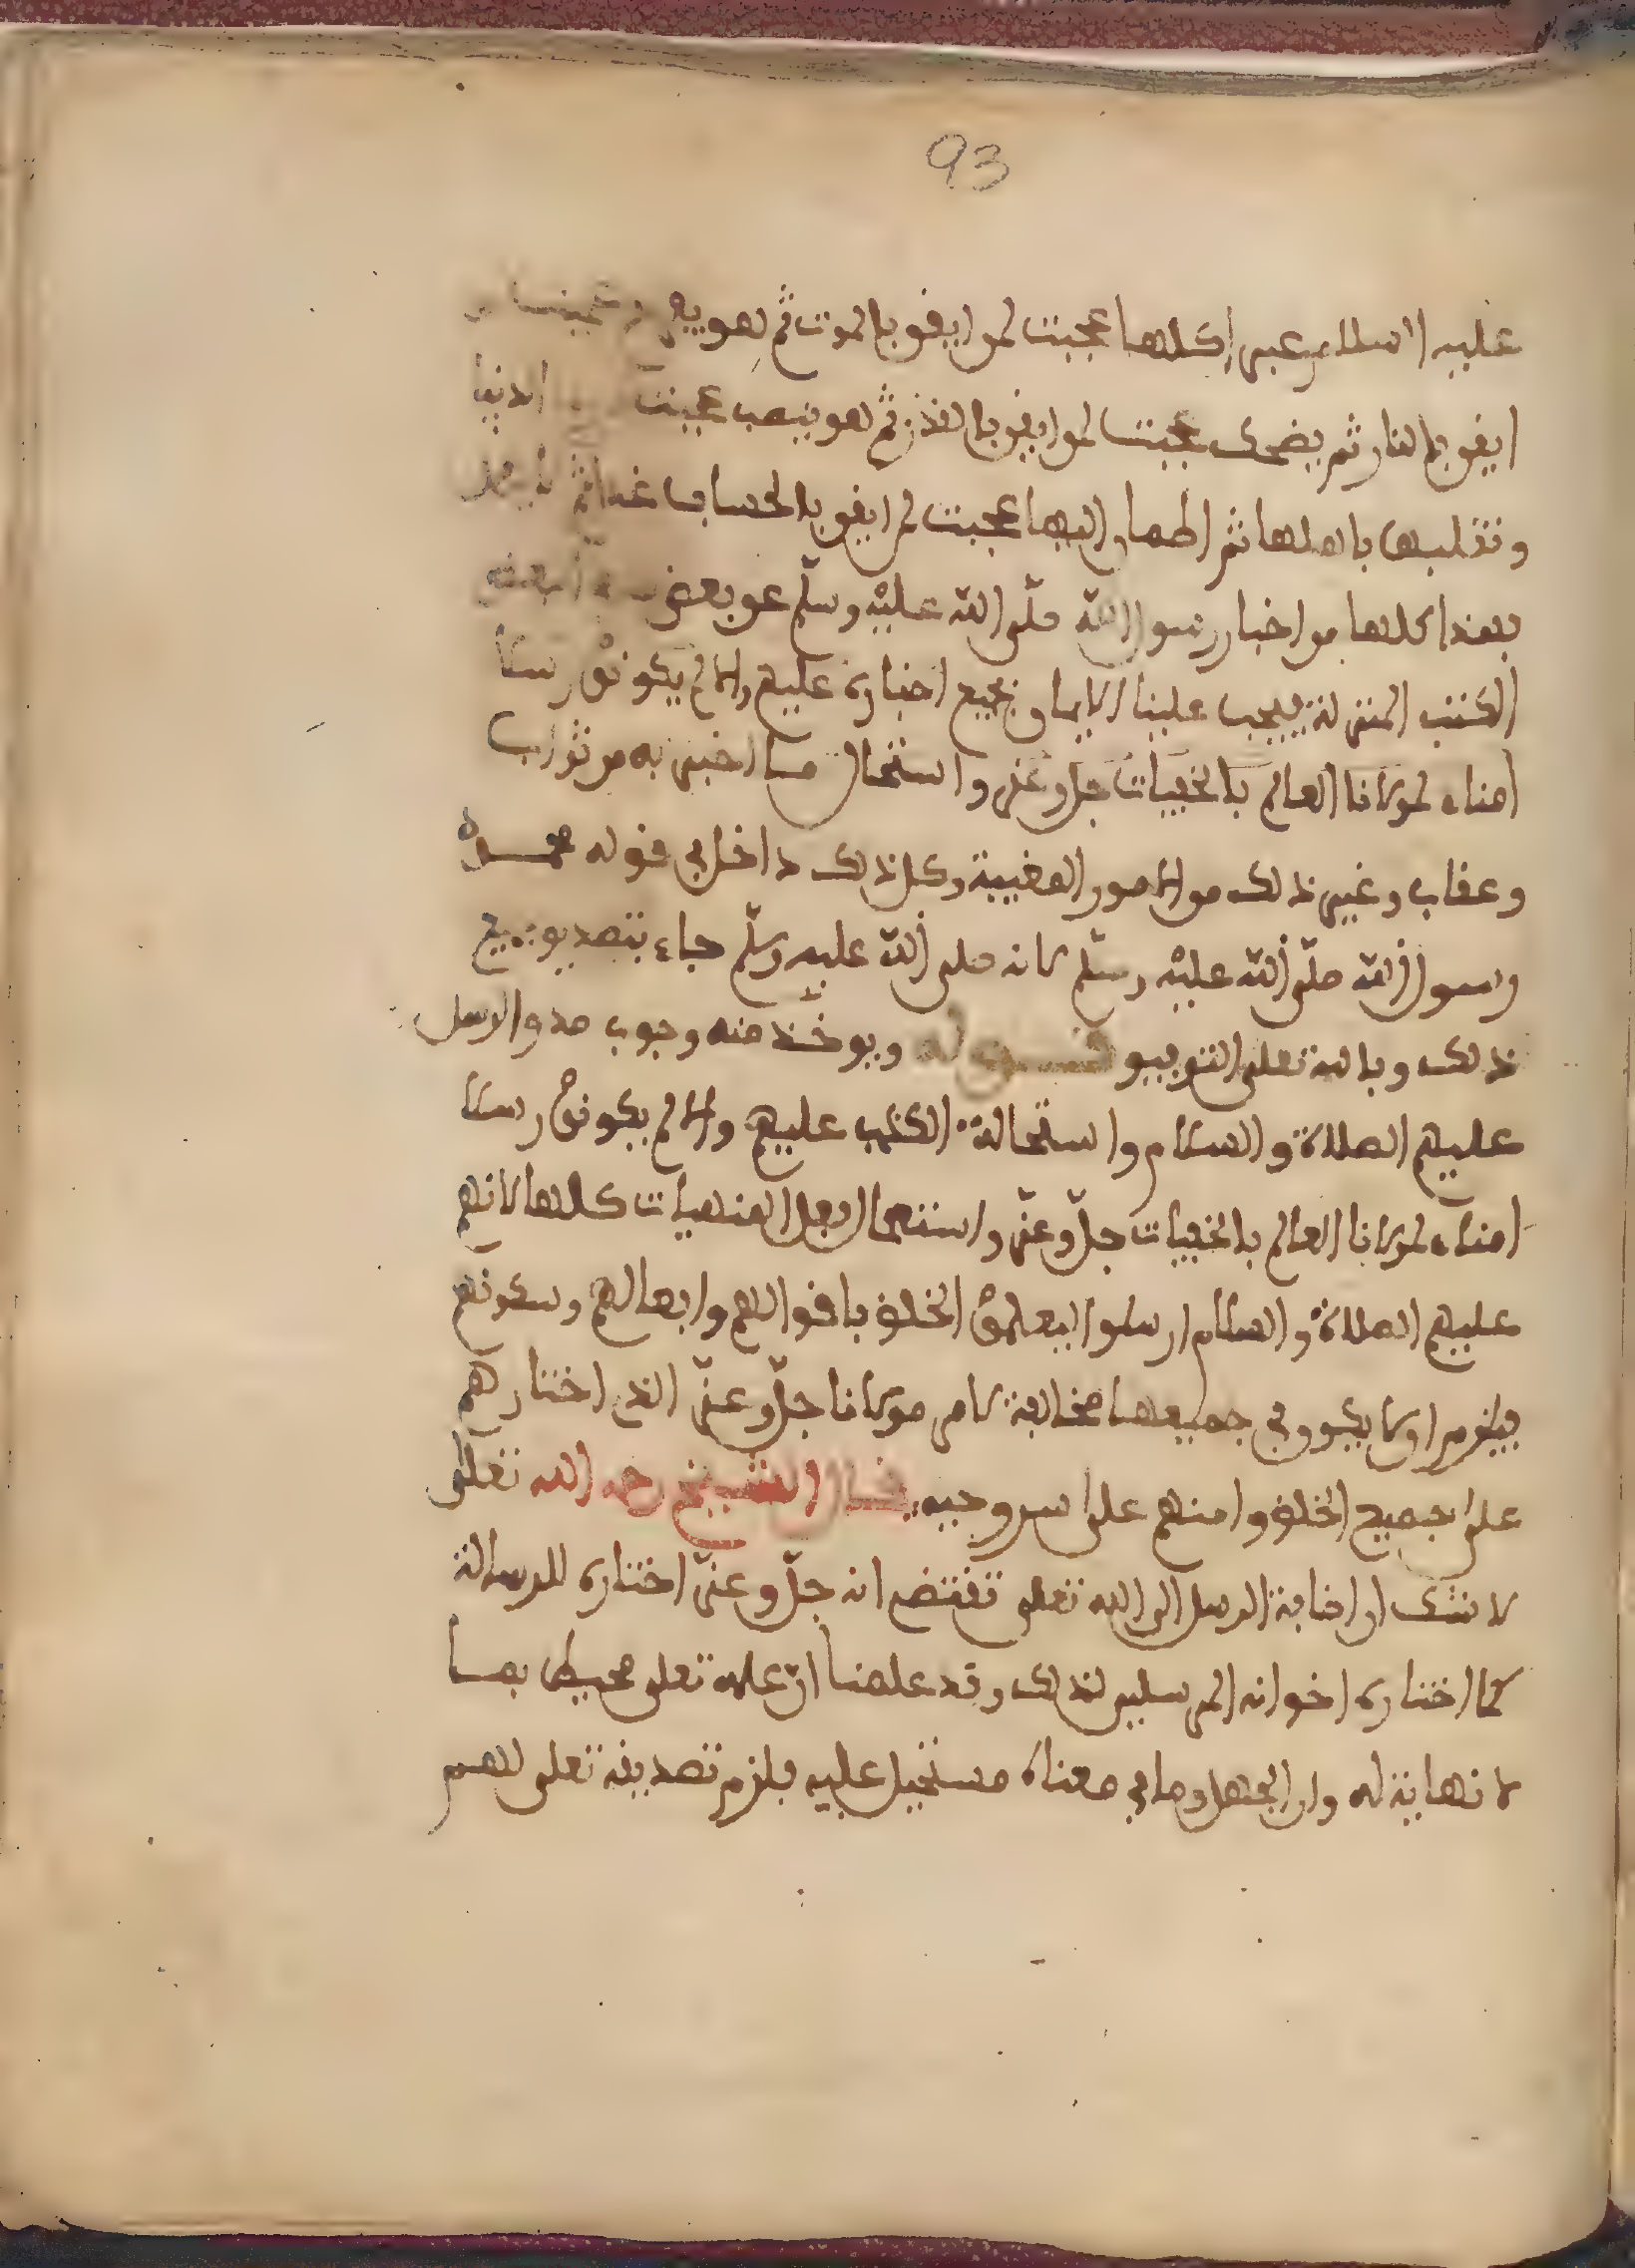 93
عليه السلام عبرا كلها عجبت لمن ايقن بالموت ثم هو يفرح عجبت لمن
ايقن بالنار ثم يضحك عجبت لمن ايقن بالقدر ثم هو ينصب عجبت الدنيا
وتقلبها باهلها ثم اطمان اليها عجبت لمن ايقن بالحساب غدا ثم لا يعمل
فهذا كلها من اخبار رسول الله صلّى الله عليه وسلّم عن بعض
الكتب المنزلة فيجب علينا الايمان بجميع اخباره عليهم والا لم يكونوا رسلا
امناء لمولانا العالم بالخفيات جلّ وعزّ واستحال ما اخبر به من ثواب
وعقاب وغير ذلك من الامور المغيبة وكل ذلك داخل في قوله محمد
رسول الله صلّى الله عليه وسلّم لانه صلى الله عليه وسلّم جاء بتصديق جميع
ذلك وبالله تعلى التوفيق قوله ويوخذ منه وجوب صدق الرسل
عليهم الصلاة والسلام واستحالة الكذب عليهم والا لم يكونوا رسلا
امناء لمولانا العالم بالخفيات جلّ وعزّ واستحال فعل المنهيات كلها لانهم
عليهم الصلاة والسلام ارسلوا ليعلموا الخلق باقوالهم وافعالهم وسكوتهم
فيلزم ان لا يكون في جميعها مخالفة لامر مولانا جلّ وعزّ الذي اختارهم
على جميع الخلق وامنهم على سر وحيه قال الشيخ رحمه الله تعلى
لا شك ان اضافة الرسل الى الله تعلى تقتضي انه جلّ وعزّ اختاره للرسالة
كما اختاره اخوانه المرسلين لذلك وقد علمنا انّ علمه تعلى محيط بما
لا نهاية له وان الجهل وما في معناه مستحيل عليه فلزم تصديقه تعلى لهم